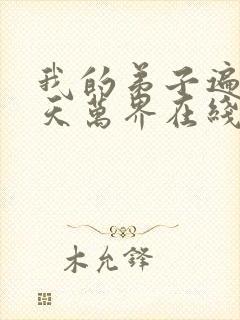 我的弟子遍
天萬界在綫
木允鋒